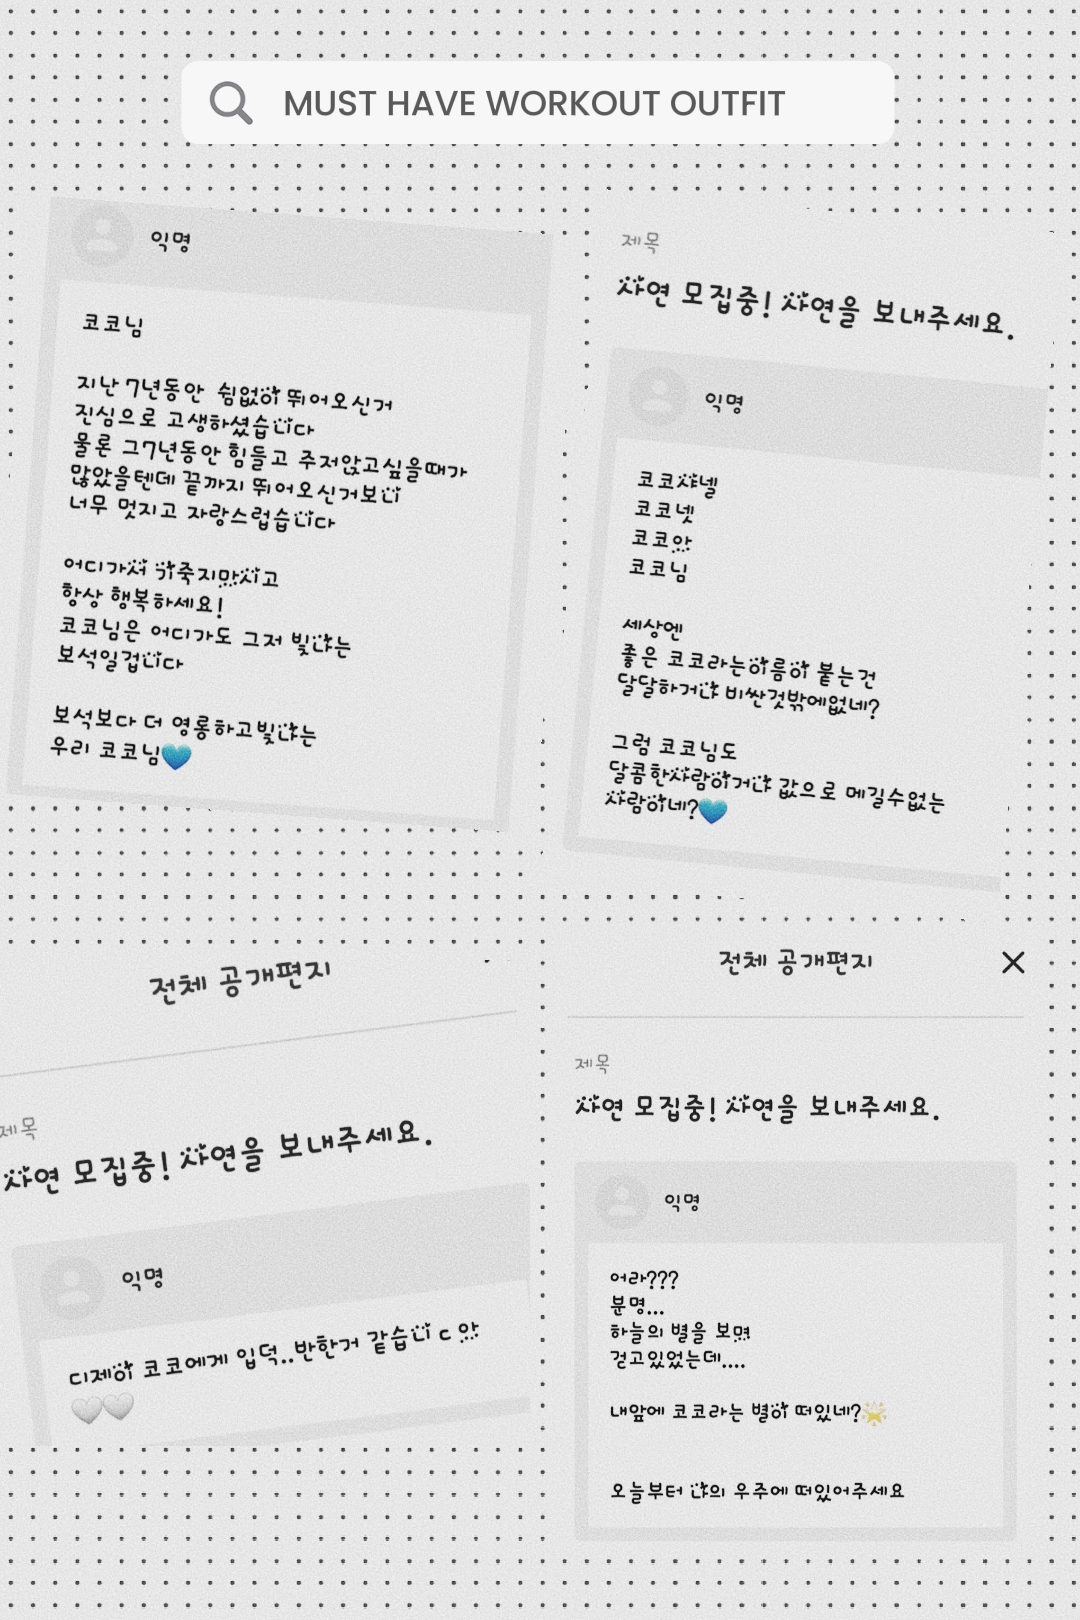 MUST HAVE WORKOUT OUTFIT
익명
코코님
지난 7년동안 쉼없이 뛰어오신거
진심으로 고생하셨습니다
물론 그7년동안 힘들고 주저앉고싶을때가
많았을텐데 끝까지 뛰어오신거보니
너무 멋지고 자랑스럽습니다
어디가서 기죽지말시고
항상 행복하세요!
코코님은 어디가도 그저 빛나는
보석일겁니다
보석보다 더 영롱하고빛나는
우리 코코님💙
제목
사연 모집중! 사연을 보내주세요.
익명
코코샤넬
코코넷
코코알
코코님
세상엔
좋은 코코라는이름이 붙는건
달달하거나 비싼것밖에없네?
그럼 코코님도
달콤한사람이거나 값으로 메길수없는
사람이네?💙
전체 공개편지
제목
사연 모집중! 사연을 보내주세요.
익명
디제이 코코에게 입덕..반한거 같습니 ㄷ
🤍🤍
전체 공개편지
제목
사연 모집중! 사연을 보내주세요.
익명
어라???
분명...
하늘의 별을 보며
걷고있었는데....
내앞에 코코라는 별이 떠있네?🌟
오늘부터 나의 우주에 떠있어주세요